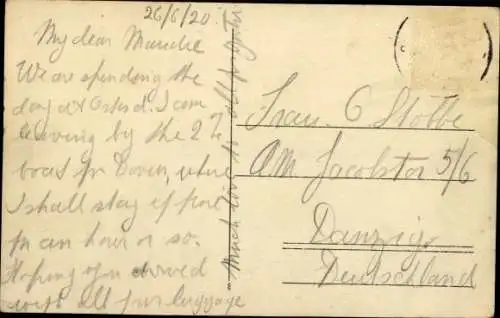 26/6/20
My dear Maudie
We are spending the
day at Ostend. I am
leaving by the 2
boat for Dover, where
I shall stay
for an hour or so.
Hoping you arrived
with all your luggage
Much love to all
Frau. C Stobbe
Am Jacobstor 5/6
Danzig
Deutschland